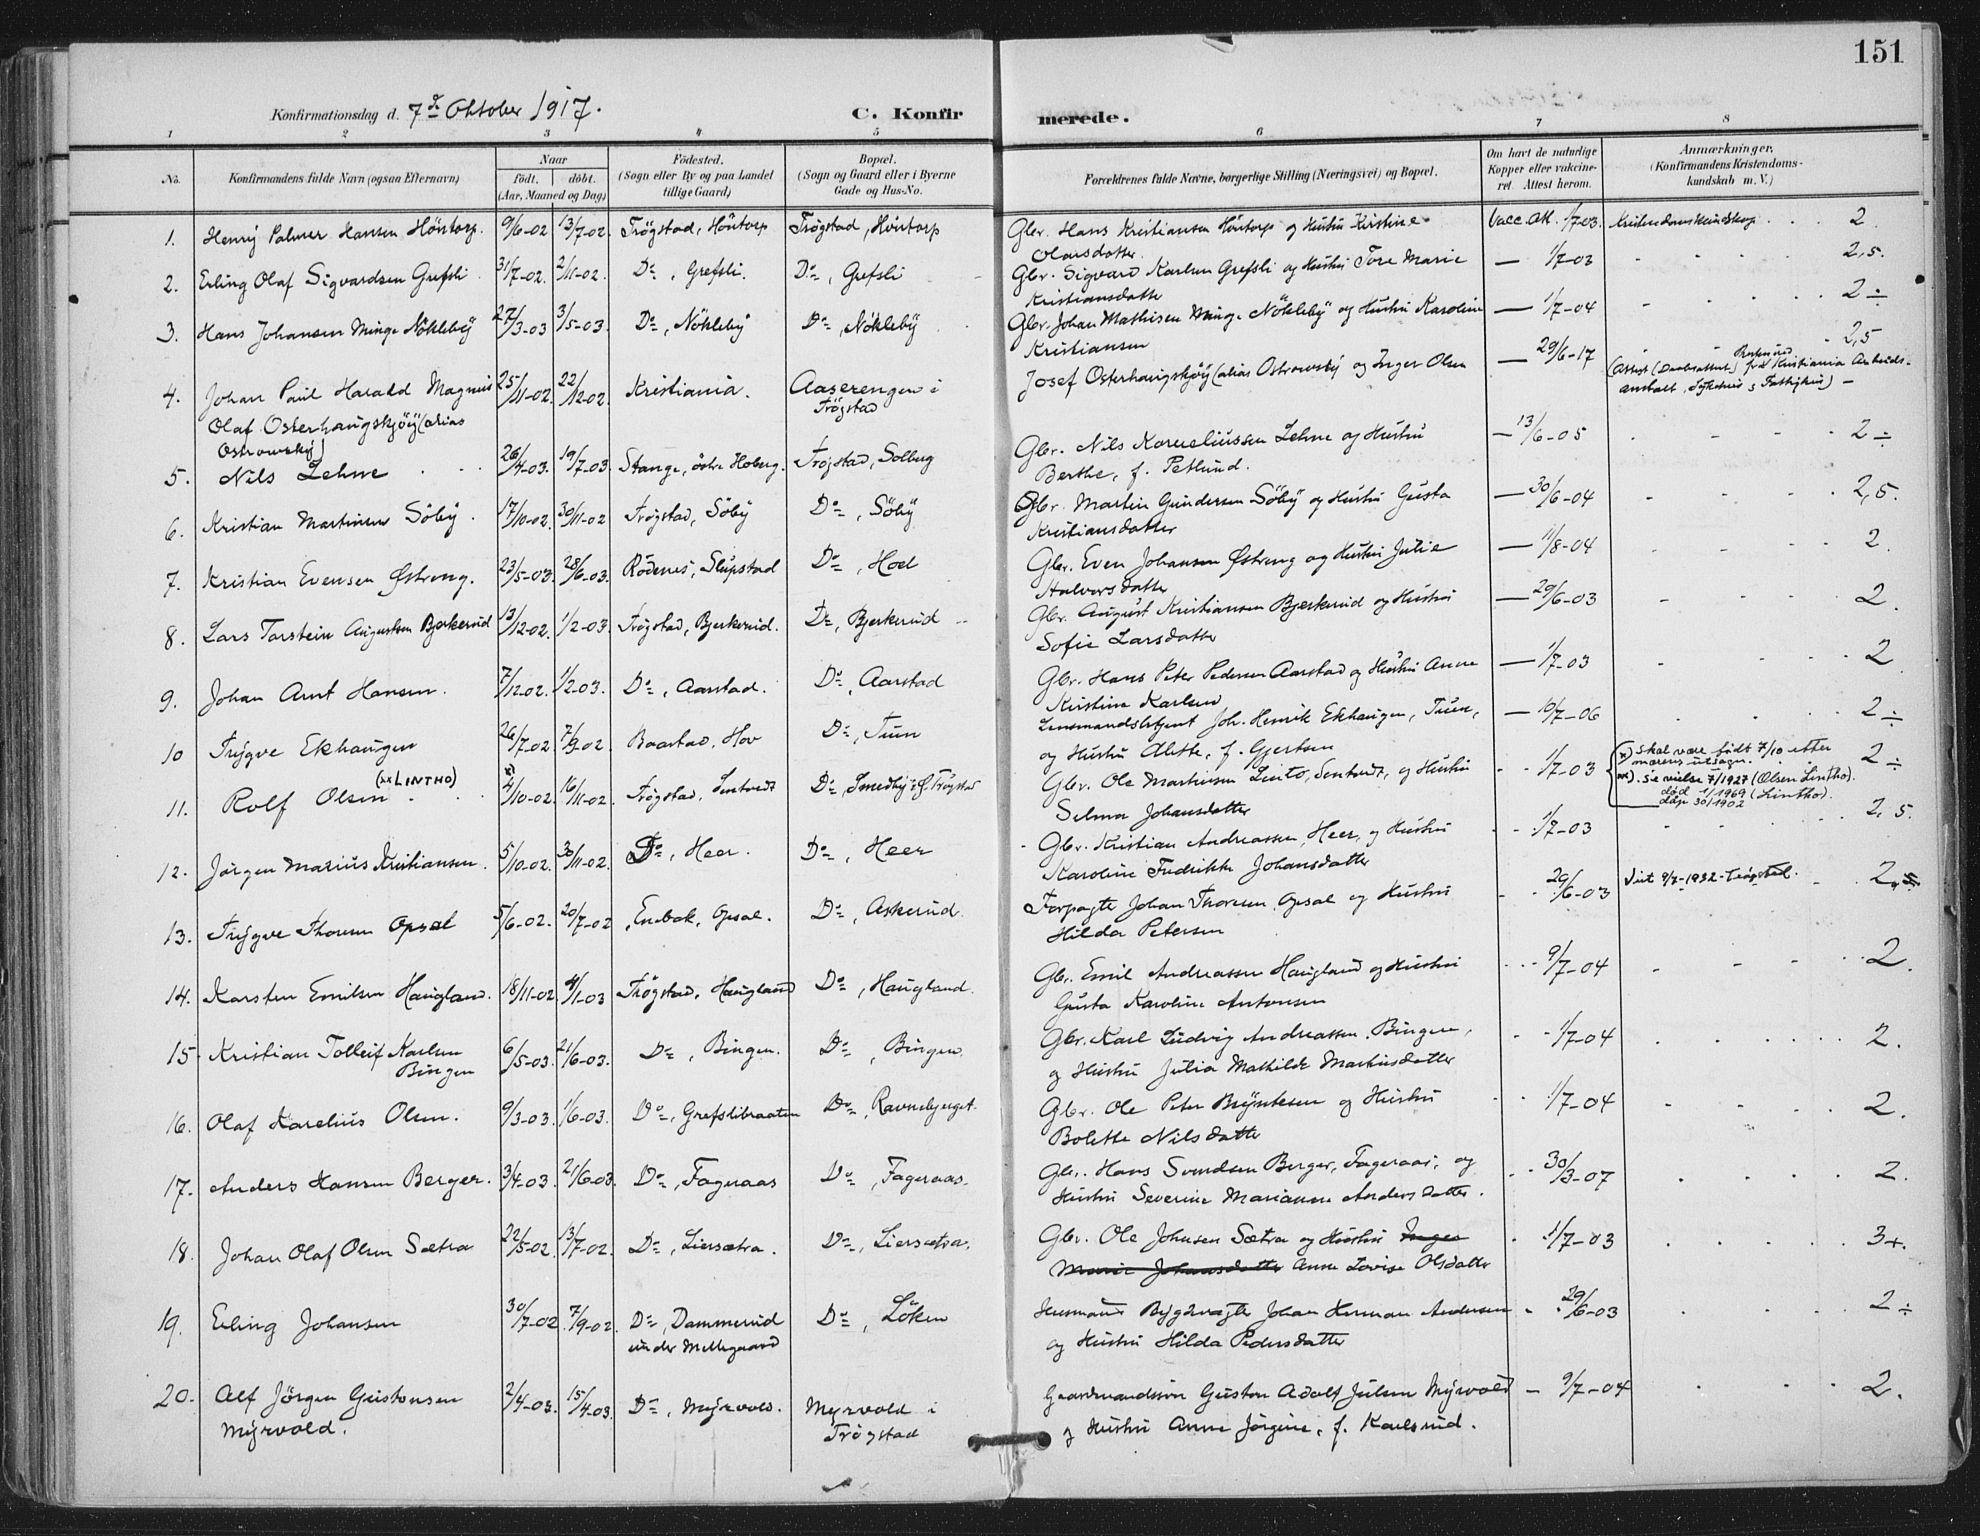 151
Konfirmationsdag d. 7de Oktober 1917.
C. Konfirmerede.
1 2 3 4 5 6 7 8
No. Konfirmandens fulde Navn (ogsaa Efternavn) Naar født. døbt. (Aar, Maaned og Dag) Födested. (Sogn eller By og paa Landet tillige Gaard) Bopæl. (Sogn og Gaard eller i Byerne Gade og Hus-No. Forældrenes fulde Navne, borgerlige Stilling (Næringsvei) og Bopæl. Om havt de naturlige Kopper eller vakcineret. Attest herom. Anmærkninger. (Konfirmandens Kristendomskundskab m. V.)
1. Henry Palmer Hansen Höntorp. 9/6-02 13/7-02. Trøgstad, Höntorp Trøgstad, Höntorp Gbr. Hans Kristiansen Höntorp og Hustru Kirstine Vacc. att. 1/7-03. Kristendomskundskap 2
Olausdatter
2. Erling Olaf Sigvardsen Grefsli 31/7-02. 2/11-02. Do, Grefsli. Do, Grefsli Gbr. Sigvard Karlsen Grefsli og Hustru Tore Marie — 1/7-03 2,5.
Kristiansdatter
3. Hans Johansen Minge Nökleby 27/3-03 3/5-03. Do, Nökleby Do, Nökleby Gbr. Johan Mathisen Minge Nökleby og Hustru Karoline — 1/7-04 2÷
Kristiansen
4. Johan Paul Harald Magnus 25/11-02. 22/12-02. Kristiania. Aaserengen i Josef Osterhaugskjöy (alias Ostrowsky og Inger Olsen — 29/6-17 2,5
Olaf Osterhaugskjöy (alias Trögstad (Attest (Daabsattest) fra Kristiania Arbeids-
Ostrowsky) anstalt, Sykehus &
5. Nils Lehne 26/4-03. 19/7-03. Stange, östre Hoberg. Trögstad, Solberg Gbr. Nils Korneliussen Lehne og Hustru — 13/6-05 2÷
Berthe, f. Petlund.
6. Kristian Martinsen Söby. 17/10-02. 30/11-02 Trögstad, Söby Do, Söby Gbr. Martin Gundersen Söby og Hustru Gusta — 30/6-04 2,5.
Kristiansdatter
7. Kristian Evensen Østreng. 23/5-03. 28/6-03. Rödenes, Slupstad Do, Hoel Gbr. Even Johansen Østreng og Hustru Julie — 11/8-04 2.
Halvorsdatter
8. Lars Torstein Augustsen Bjerkerud 13/12-02. 1/2-03. Trögstad, Bjerkerud. Do, Bjerkerud Gbr. August Kristiansen Bjerkerud og Hustru — 29/6-03 2.
Sofie Larsdatter
9. Johan Arnt Hansen. 7/12-02. 1/2-03. Do, Aarstad. Do, Aarstad Gbr. Hans Peter Pedersen Aarstad og Hustru Anne — 1/7-03 2
Kristine Karlsen
10 Trygve Ekhaugen 26/7-02 7/9-02. Baastad, Hov Do, Tuen Lensmandsbetjent Joh. Henrik Ekhaugen, Tuen, — 10/7-06 2÷
og Hustru Alette, f. Gjertsen
11. Rolf Olsen (xx LINTHO) x) 4/10-02. 16/11-02. Trögstad, Sentvedt Do, Smedby i Ø. Trögstad Gbr. Ole Martinsen Linto, Sentvedt, og Hustru 1/7-03 x) Skal være født 7/10 etter 2÷
Selma Johansdatter morens utsagn.
xx). Se vielse 7/1927 (Olsen Lintho).
død 1/1969 (Lintho).
dåp 30/1902
12. Jørgen Marius Kristiansen. 5/10-02. 30/11-02. Do, Heer. Do, Heer Gbr. Kristian Andreassen, Heer, og Hustru 1/7-03 2,5.
Karoline Fredrikke Johansdatter
13. Trygve Thoresen Opsal 5/6-02. 20/7-02 Enebak, Opsal. Do, Askerud. Forpagter Johan Thoresen Opsal og Hustru 29/6-03 Viet 9/7-1932-Trøgstad. 2,5
Hilda Petersen
14. Karsten Emilsen Haugland. 18/11-02. 4/1-03 Trögstad, Haugland Do, Haugland. Gbr. Emil Andreassen Haugland og Hustru 9/7-04 2.
Gusta Karoline Antonsen
15. Kristian Tolleif Karlsen 6/5-03. 21/6-03. Do, Bingen. Do, Bingen. Gbr. Karl Ludvig Andreassen Bingen, 1/7-04 2.
Bingen og Hustru Julia Mathilde Markusdatter
16. Olaf Karelius Olsen. 9/3-03. 1/6-03. Do, Grefslibraaten Do, Ravnebjerget. Gbr. Ole Peter Bryntesen og Hustru 1/7-04 2.
Bolette Nilsdatter
17. Anders Hansen Berger. 3/4-03. 21/6-03. Do, Fageraas Do, Fageraas. Gbr. Hans Svendsen Berger, Fageraas, og 30/3-07 2.
Hustru Severine Marianne Andersdatter.
18. Johan Olaf Olsen Sætra 22/5-02. 13/7-02. Do, Liersætra. Do, Liersætra. Gbr. Ole Johnsen Sætra og Hustru Inger 1/7-03 3+.
Marie Johansdatter Anne Lovise Olsdatter
19. Erling Johansen 30/7-02 7/9-02. Do, Dammerud Do, Löken Husmand Johan Herman Andersen 29/6-03 2÷
under Mellegaard og Hustru Hilda Pedersdatter
20. Alf Jörgen Gustavsen 2/4-03. 15/4-03. Do, Myrvold. Myrvold i Gaardmandssön Gustav Adolf Julsen Myrvold — 9/7-04 2.
Myrvold. Trögstad og Hustru Anne Jörgine, f. Karlsrud.